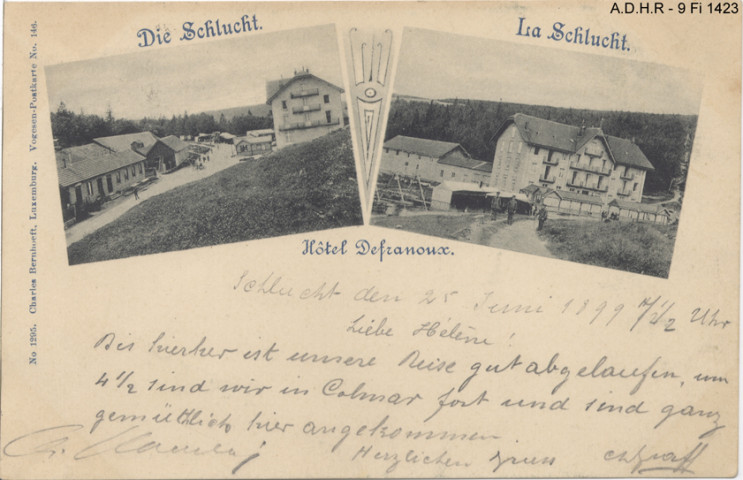 A.D.H.R - 9 Fi 1423
Die Schlucht.
La Schlucht.
Hôtel Defranoux.
No 1295. Charles Bernhoeft, Luxemburg. Vogesen-Postkarte No. 146.
Schlucht den 25 Juni 1899 7 1/2 Uhr
Liebe Hélène!
Bis hierher ist unsere Reise gut abgelaufen, um
4 1/2 sind wir in Colmar fort und sind ganz
gemütlich hier angekommen.
Herzlichen Gruss